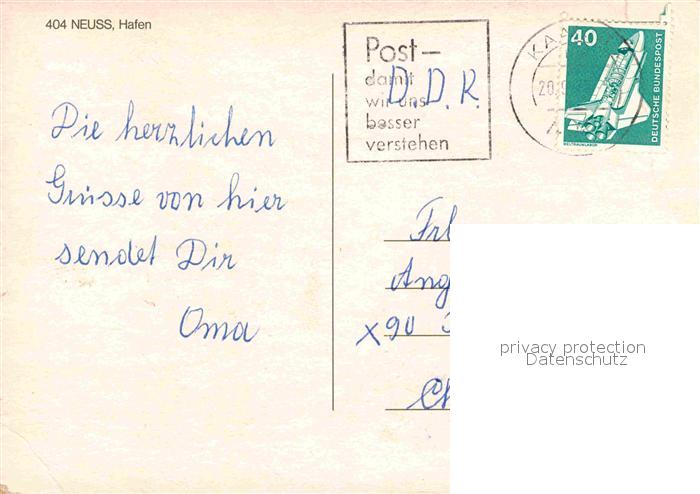 404 NEUSS, Hafen
Post–
damit
wir uns
besser
verstehen
D.D.R.
40
DEUTSCHE BUNDESPOST
WELTRAUMLABOR
Die herzlichen
Grüsse von hier
sendet Dir
Oma
Frl
Ang
x90
privacy protection
Datenschutz